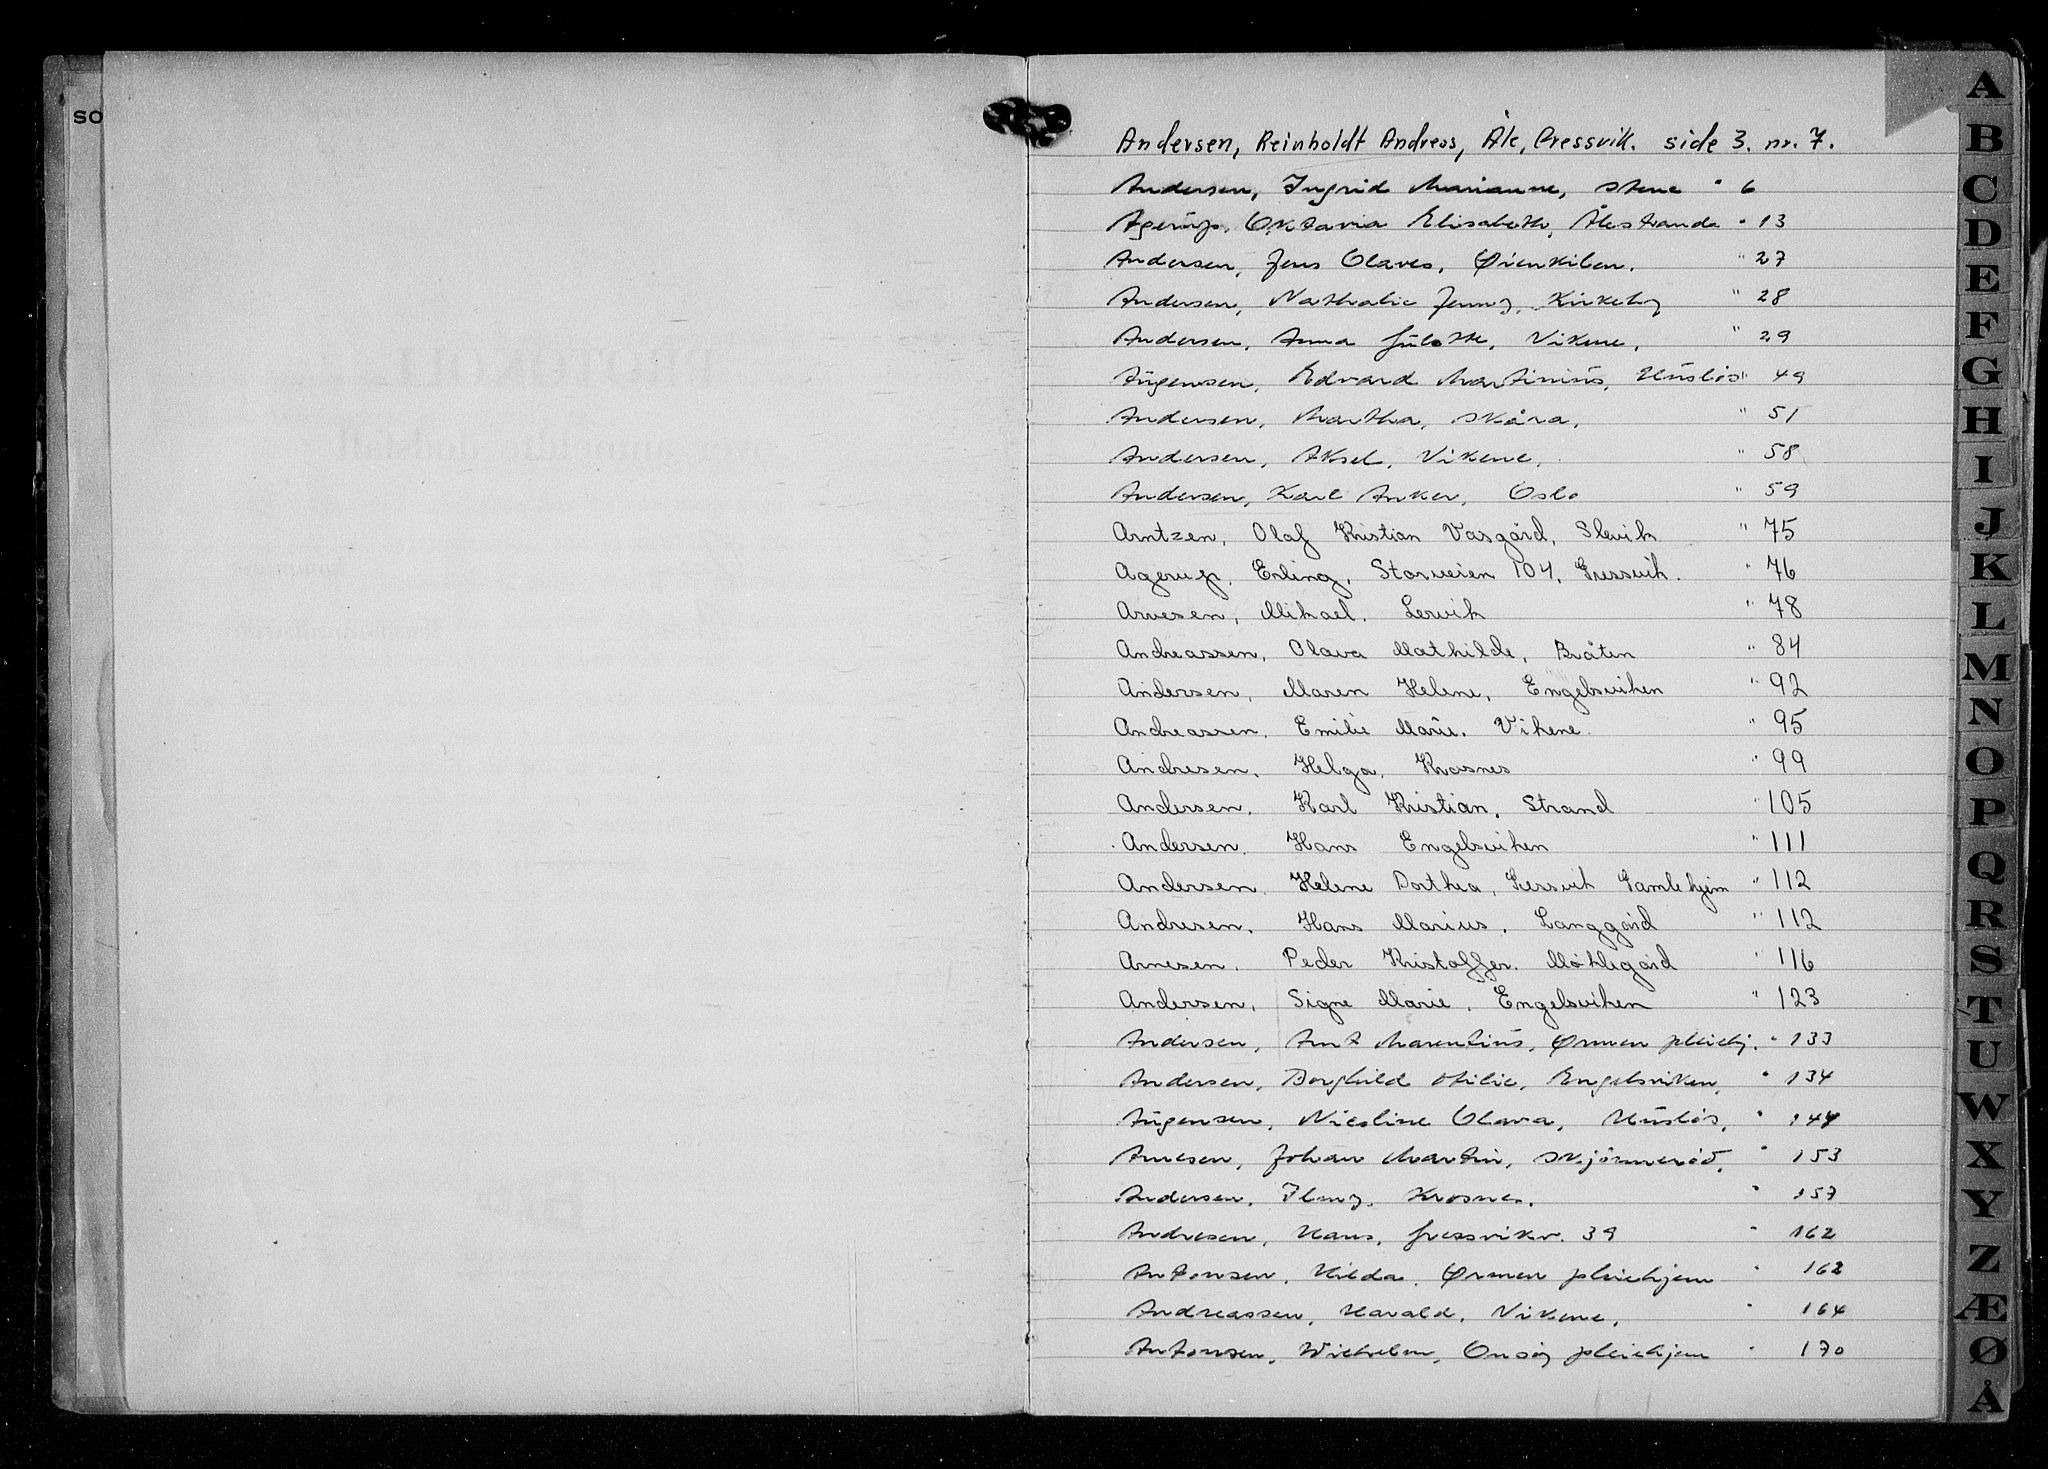 SO
Andersen, Reinholdt Andreas, Åle, Gressvik. side 3. nr. 7.
Andersen, Ingrid Marianne, Stene " 6
Agerup, Oktavia Elisabeth, Ålestranda " 13
Andersen, Jens Olaves, Øienkilen. " 27
Andersen, Nathalie Jenny, Kirkeby " 28
Andersen, Anna Julotte, Vikene, " 29
Aügensen, Edvard Martinius, Huslös " 49
Andersen, Martha, Skåra, " 51
Andersen, Aksel, Vikene, " 58
Andersen, Karl Anker, Oslo " 59
Arntzen, Olaf Kristian Vasgård, Slevik " 75
Agerup, Erling, Storveien 104, Gressvik. " 76
Arvesen, Mikael. Lervik " 78
Andreassen, Olava Mathilde, Bråten " 84
Andersen, Maren Helene, Engelsviken " 92
Andreassen, Emilie Marie, Vikene. " 95
Andresen, Helga, Krosnes " 99
Andersen, Karl Kristian, Strand " 105
Andersen. Hans Engelsviken " 111
Andersen, Helene Dorthea, Gressvik Gamlehjem " 112
Andresen, Hans Marius, Langgård " 112
Arnesen, Peder Kristoffer. Møklegård " 116
Andersen, Signe Marie, Engelsviken " 123
Andersen, Arnt Marentius, Ørmen pleiehj. " 133
Andersen, Borghild Otilie, Engelsviken, " 134
Aügensen, Nicoline Olava, Huslös, " 144
Arnesen, Johan Martin, Skjönnerød, " 153
Andersen, Jenny, Krosnes. " 157
Andresen, Hans, Gressvikv. 39 " 162
Antonsen, Hilda, Ørmen pleiehjem " 162
Andreassen, Harald, Vikene, " 164
Antonsen, Wilhelm, Onsøy pleiehjem " 170
A
B
C
D
E
F
G
H
I
J
K
L
M
N
O
P
Q
R
S
T
U
W
X
Y
Z
Æ
Ø
Å